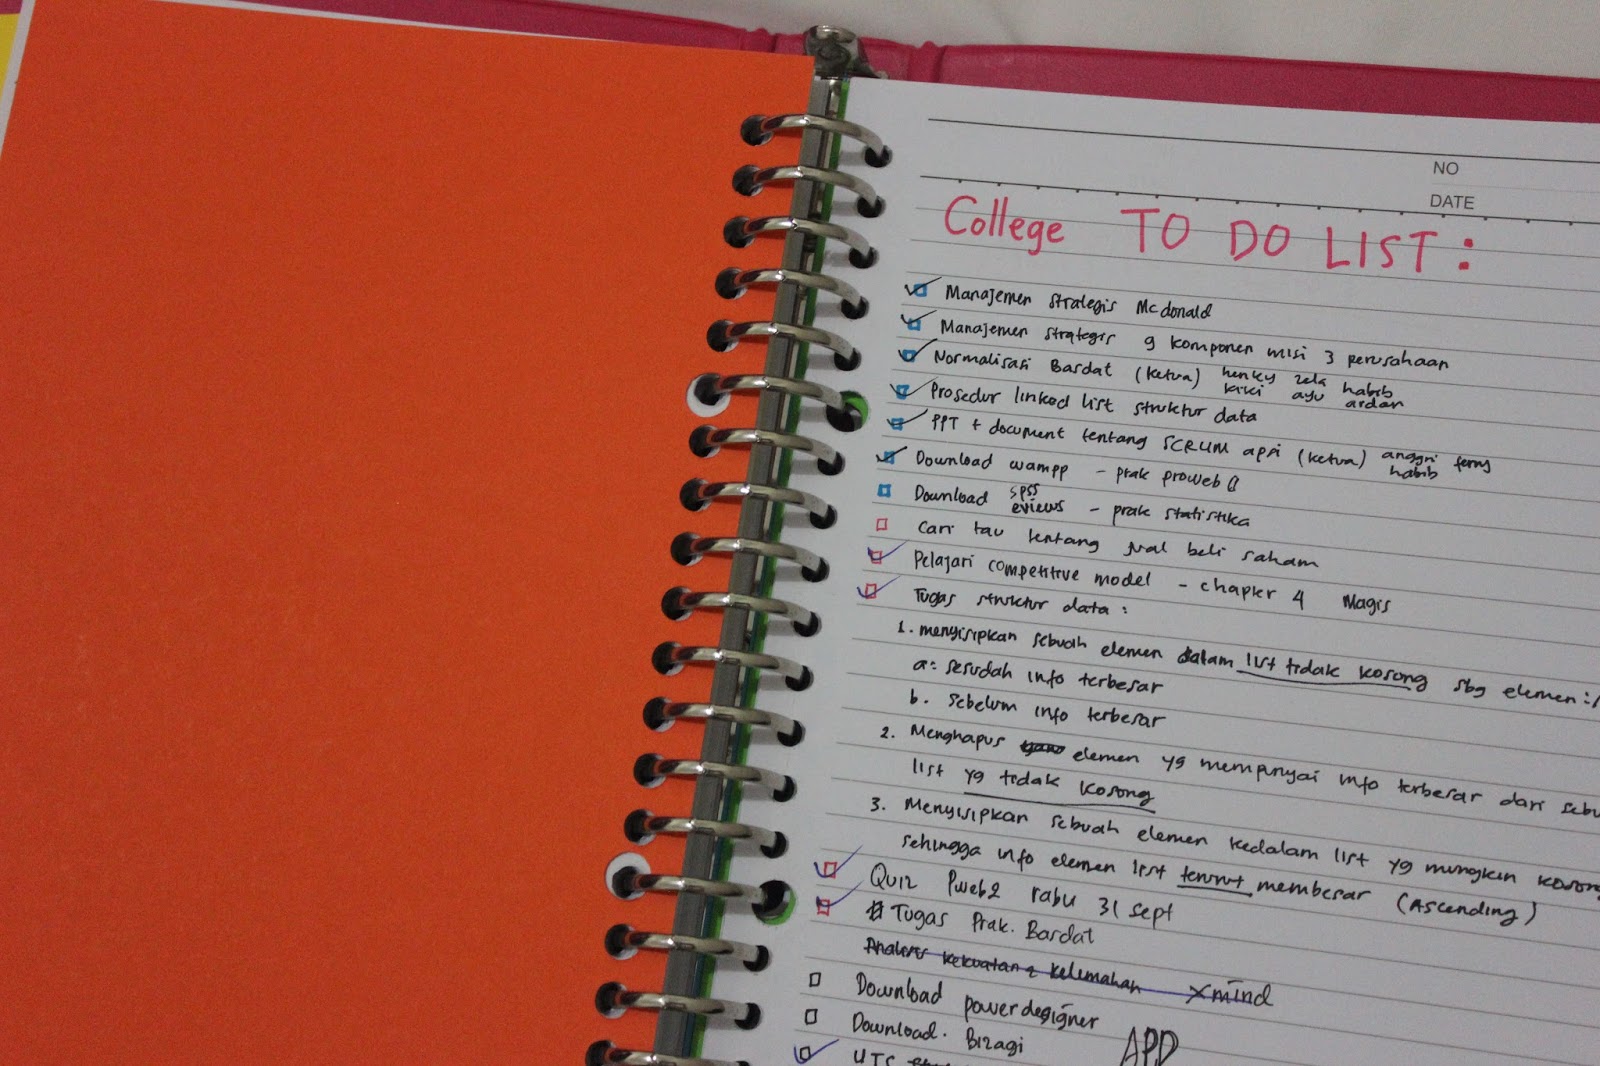 NO
DATE
College TO DO LIST :
Manajemen strategis McDonald
Manajemen strategis 9 komponen misi 3 perusahaan
Normalisasi Basdat (ketua) henky zela habib
kiki ayu ardan
Prosedur linked list struktur data
PPT + document tentang SCRUM apsi (ketua) anggri ferny
habib
Download wampp - prak proweb
Download spss
eviews - prak statistika
Cari tau tentang jual beli saham
Pelajari competitive model - chapter 4 Magis
Tugas struktur data :
1. menyisipkan sebuah elemen dalam list tidak kosong sbg elemen :
a. sesudah info terbesar
b. sebelum info terbesar
2. Menghapus elemen yg mempunyai info terbesar dari sebu
list yg tidak kosong
3. Menyisipkan sebuah elemen kedalam list yg mungkin kosong
sehingga info elemen list terurut membesar (Ascending)
Quiz Pweb2 rabu 31 sept
Tugas Prak. Basdat
Analisis kekuatan & kelemahan xmind
Download powerdesigner
Download. Bizagi
APD
UTS